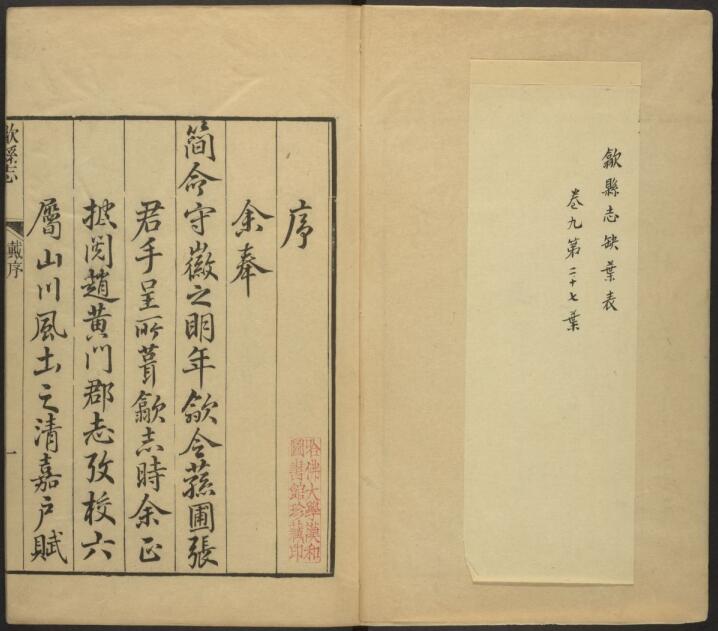 歙縣志缺葉表
卷九第二十七葉
序
余奉
簡命守徽之明年歙令蓀圃張
君手呈所葺歙志時余正
披閱趙黃門郡志攷校六
屬山川風土之清嘉戶賦
歙縣志
戴序
一
哈佛大學漢和
圖書館珍藏印